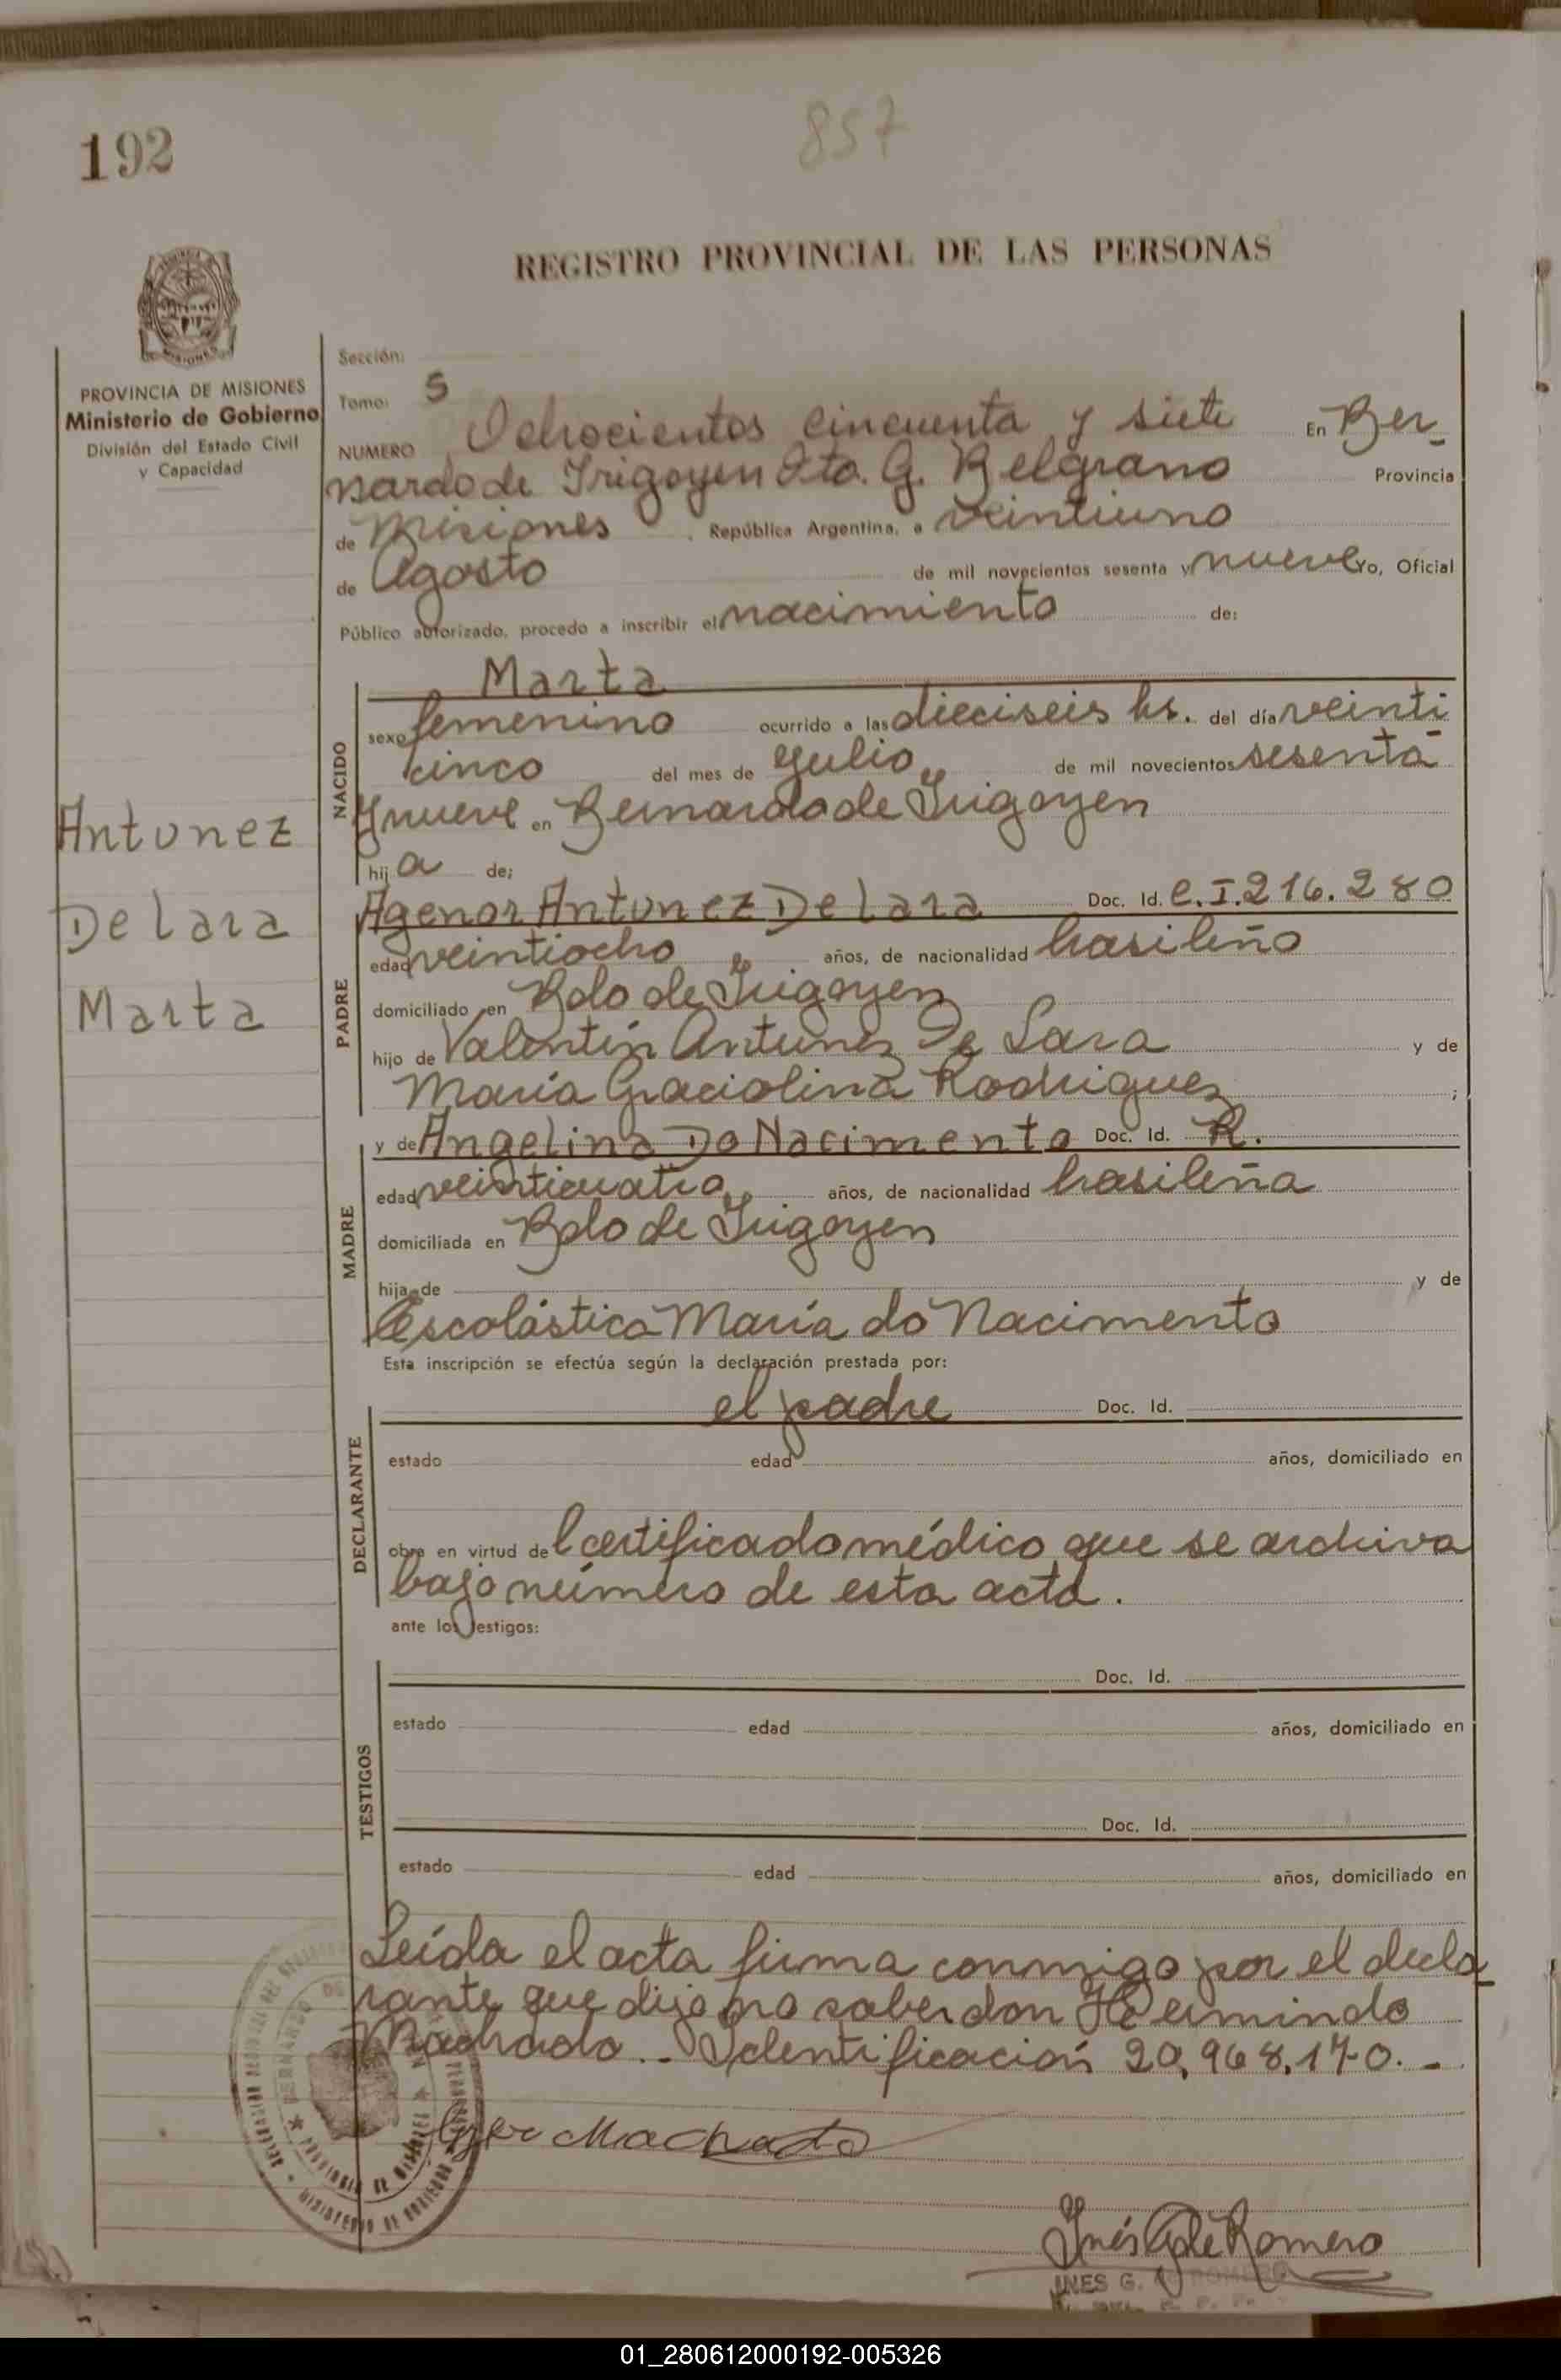 192
857
REGISTRO PROVINCIAL DE LAS PERSONAS
PROVINCIA DE MISIONES
Ministerio de Gobierno
División del Estado Civil
y Capacidad
Antunez
De Lara
Marta
Sección:
Tomo: 5
NUMERO Ochocientos cincuenta y siete En Ber-
nardo de Irigoyen Dto. G. Belgrano Provincia
de Misiones, República Argentina, a veintiuno
de Agosto de mil novecientos sesenta y nueve Yo, Oficial
Público autorizado, procedo a inscribir el nacimiento de:
NACIDO
Marta
sexo femenino ocurrido a las dieciseis hs. del día veinti
cinco del mes de Julio de mil novecientos sesenta
y nueve en Bernardo de Irigoyen
hija de;
PADRE
Agenor Antunez De Lara Doc. Id. C.I.216.280
edad veintiocho años, de nacionalidad brasileño
domiciliado en Bdo de Irigoyen
hijo de Valentín Antunez De Lara y de
María Graciolina Rodriguez;
MADRE
y de Angelina Do Nacimento Doc. Id. R.
edad veinticuatro años, de nacionalidad brasileña
domiciliada en Bdo de Irigoyen
hija de y de
Escolástica María do Nacimento
Esta inscripción se efectúa según la declaración prestada por:
DECLARANTE
el padre Doc. Id.
estado edad años, domiciliado en
obra en virtud del certificado médico que se archiva
bajo número de esta acta.
ante los testigos:
TESTIGOS
Doc. Id.
estado edad años, domiciliado en
Doc. Id.
estado edad años, domiciliado en
Leída el acta firma conmigo por el decla-
rante que dijo no saber don Hermindo
Machado.- Identificación 20,968.170.-
Machado
Inés G de Romero
INES G. DE ROMERO
01_280612000192-005326